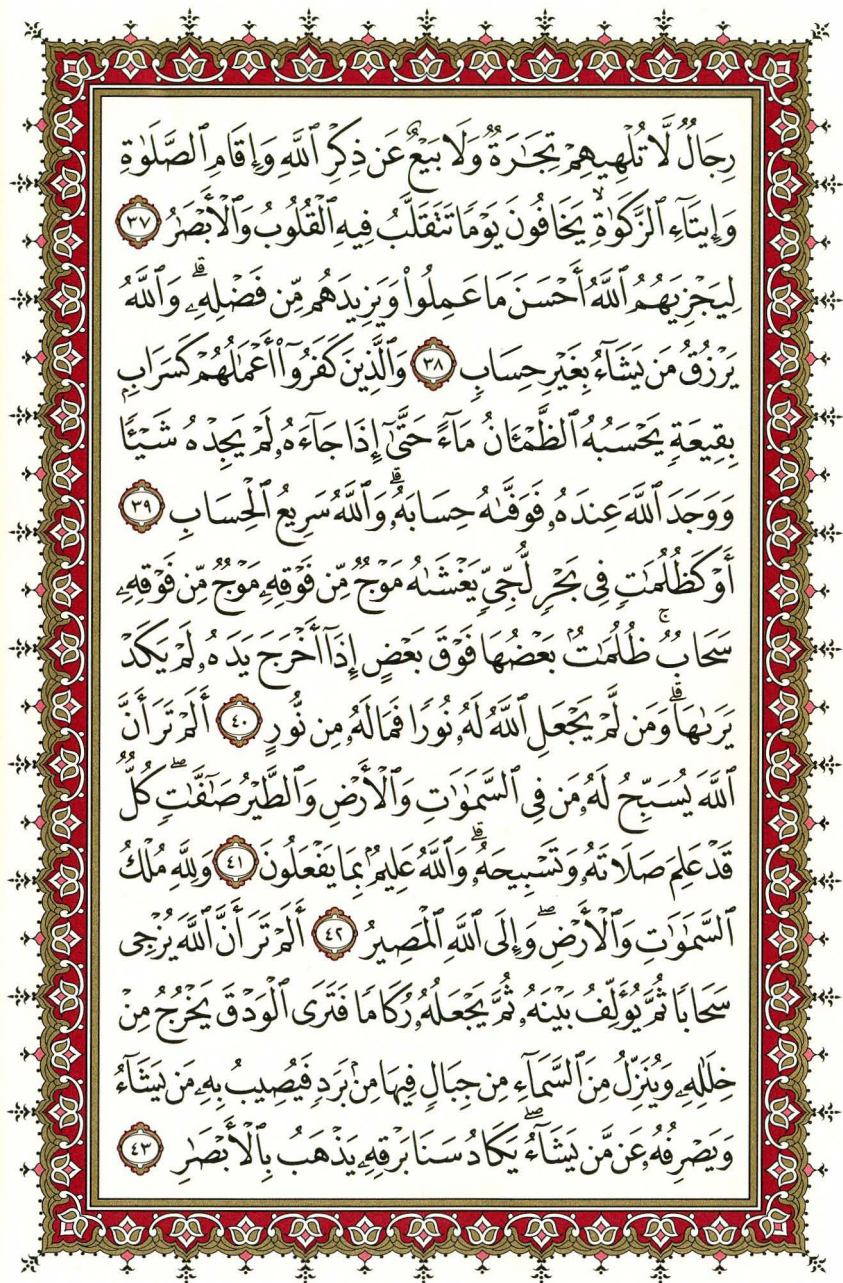 رِجَالٌ لَّا تُلْهِيهِمْ تِجَٰرَةٌ وَلَا بَيْعٌ عَن ذِكْرِ ٱللَّهِ وَإِقَامِ ٱلصَّلَوٰةِ
وَإِيتَآءِ ٱلزَّكَوٰةِ ۙ يَخَافُونَ يَوْمًا تَتَقَلَّبُ فِيهِ ٱلْقُلُوبُ وَٱلْأَبْصَٰرُ ٣٧
لِيَجْزِيَهُمُ ٱللَّهُ أَحْسَنَ مَا عَمِلُوا۟ وَيَزِيدَهُم مِّن فَضْلِهِۦ ۗ وَٱللَّهُ
يَرْزُقُ مَن يَشَآءُ بِغَيْرِ حِسَابٍ ٣٨ وَٱلَّذِينَ كَفَرُوٓا۟ أَعْمَٰلُهُمْ كَسَرَابٍۭ
بِقِيعَةٍ يَحْسَبُهُ ٱلظَّمْـَٔانُ مَآءً حَتَّىٰٓ إِذَا جَآءَهُۥ لَمْ يَجِدْهُ شَيْـًٔا
وَوَجَدَ ٱللَّهَ عِندَهُۥ فَوَفَّىٰهُ حِسَابَهُۥ ۗ وَٱللَّهُ سَرِيعُ ٱلْحِسَابِ ٣٩
أَوْ كَظُلُمَٰتٍ فِى بَحْرٍ لُّجِّىٍّ يَغْشَىٰهُ مَوْجٌ مِّن فَوْقِهِۦ مَوْجٌ مِّن فَوْقِهِۦ
سَحَابٌ ۚ ظُلُمَٰتٌۢ بَعْضُهَا فَوْقَ بَعْضٍ إِذَآ أَخْرَجَ يَدَهُۥ لَمْ يَكَدْ
يَرَىٰهَا ۗ وَمَن لَّمْ يَجْعَلِ ٱللَّهُ لَهُۥ نُورًا فَمَا لَهُۥ مِن نُّورٍ ٤٠ أَلَمْ تَرَ أَنَّ
ٱللَّهَ يُسَبِّحُ لَهُۥ مَن فِى ٱلسَّمَٰوَٰتِ وَٱلْأَرْضِ وَٱلطَّيْرُ صَٰٓفَّٰتٍ ۖ كُلٌّ
قَدْ عَلِمَ صَلَاتَهُۥ وَتَسْبِيحَهُۥ ۗ وَٱللَّهُ عَلِيمٌۢ بِمَا يَفْعَلُونَ ٤١ وَلِلَّهِ مُلْكُ
ٱلسَّمَٰوَٰتِ وَٱلْأَرْضِ ۖ وَإِلَى ٱللَّهِ ٱلْمَصِيرُ ٤٢ أَلَمْ تَرَ أَنَّ ٱللَّهَ يُزْجِى
سَحَابًا ثُمَّ يُؤَلِّفُ بَيْنَهُۥ ثُمَّ يَجْعَلُهُۥ رُكَامًا فَتَرَى ٱلْوَدْقَ يَخْرُجُ مِنْ
خِلَٰلِهِۦ وَيُنَزِّلُ مِنَ ٱلسَّمَآءِ مِن جِبَالٍ فِيهَا مِنۢ بَرَدٍ فَيُصِيبُ بِهِۦ مَن يَشَآءُ
وَيَصْرِفُهُۥ عَن مَّن يَشَآءُ ۖ يَكَادُ سَنَا بَرْقِهِۦ يَذْهَبُ بِٱلْأَبْصَٰرِ ٤٣